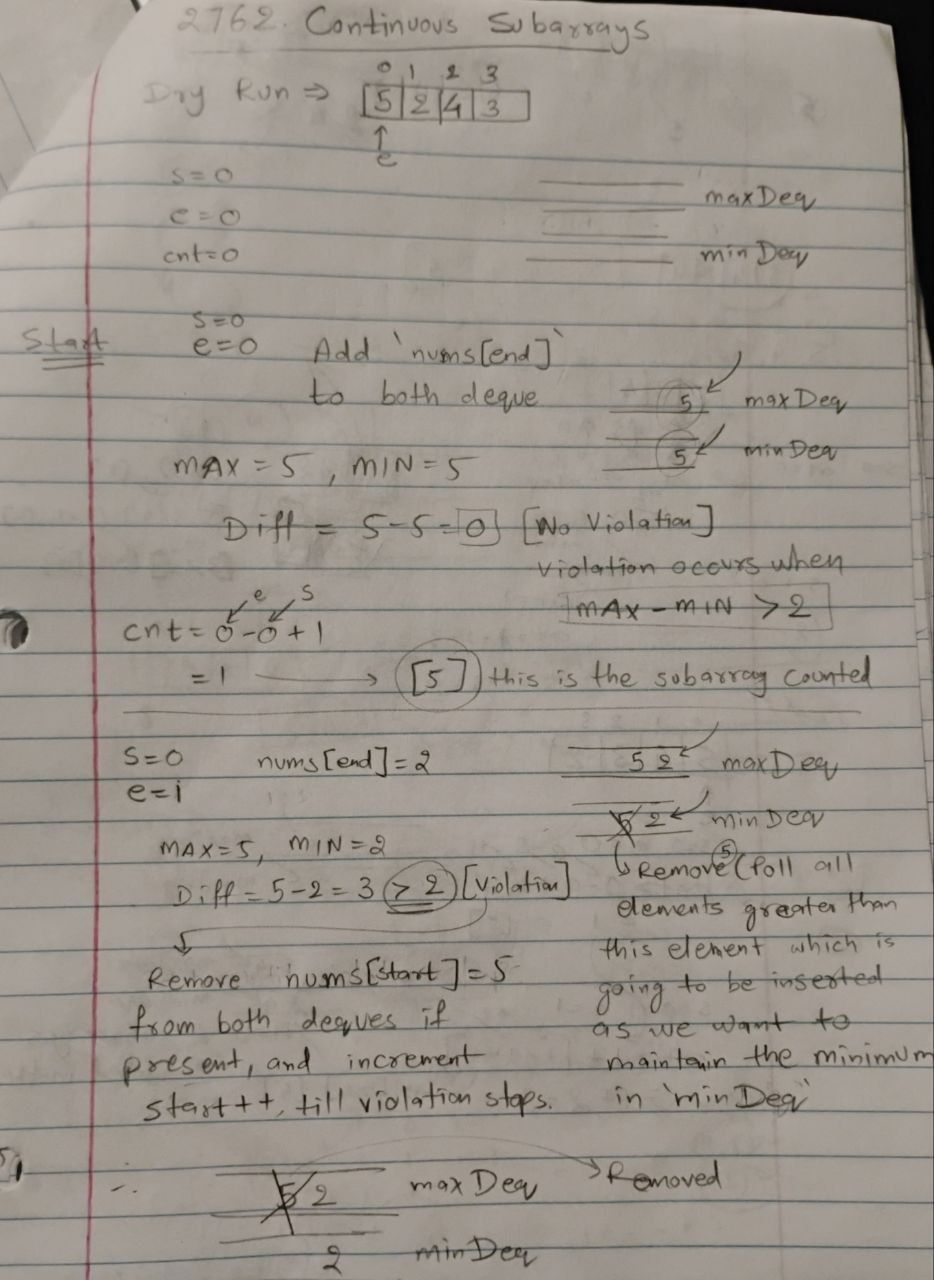 2762. Continuous Subarrays
0 1 2 3
Dry Run ⇒ [5|2|4|3]
↑
e
s=0
e=0
cnt=0
maxDeq
minDeq
Start
s=0
e=0 Add `nums[end]`
to both deque
5 maxDeq
5 minDeq
MAX = 5, MIN = 5
Diff = 5-5=0 [No Violation]
Violation occurs when
MAX - MIN > 2
e s
cnt = 0-0+1
= 1 → [5] this is the subarray counted
s=0 nums[end]=2
e=1
5 2 maxDeq
5 2 minDeq
MAX=5, MIN=2
Diff = 5-2 = 3 > 2 [Violation]
Remove nums[start]=5
from both deques if
present, and increment
start++, till violation stops.
↳ Remove 5 (Poll all
elements greater than
this element which is
going to be inserted
as we want to
maintain the minimum
in 'minDeq'
∴ 5 2 maxDeq → Removed
2 minDeq